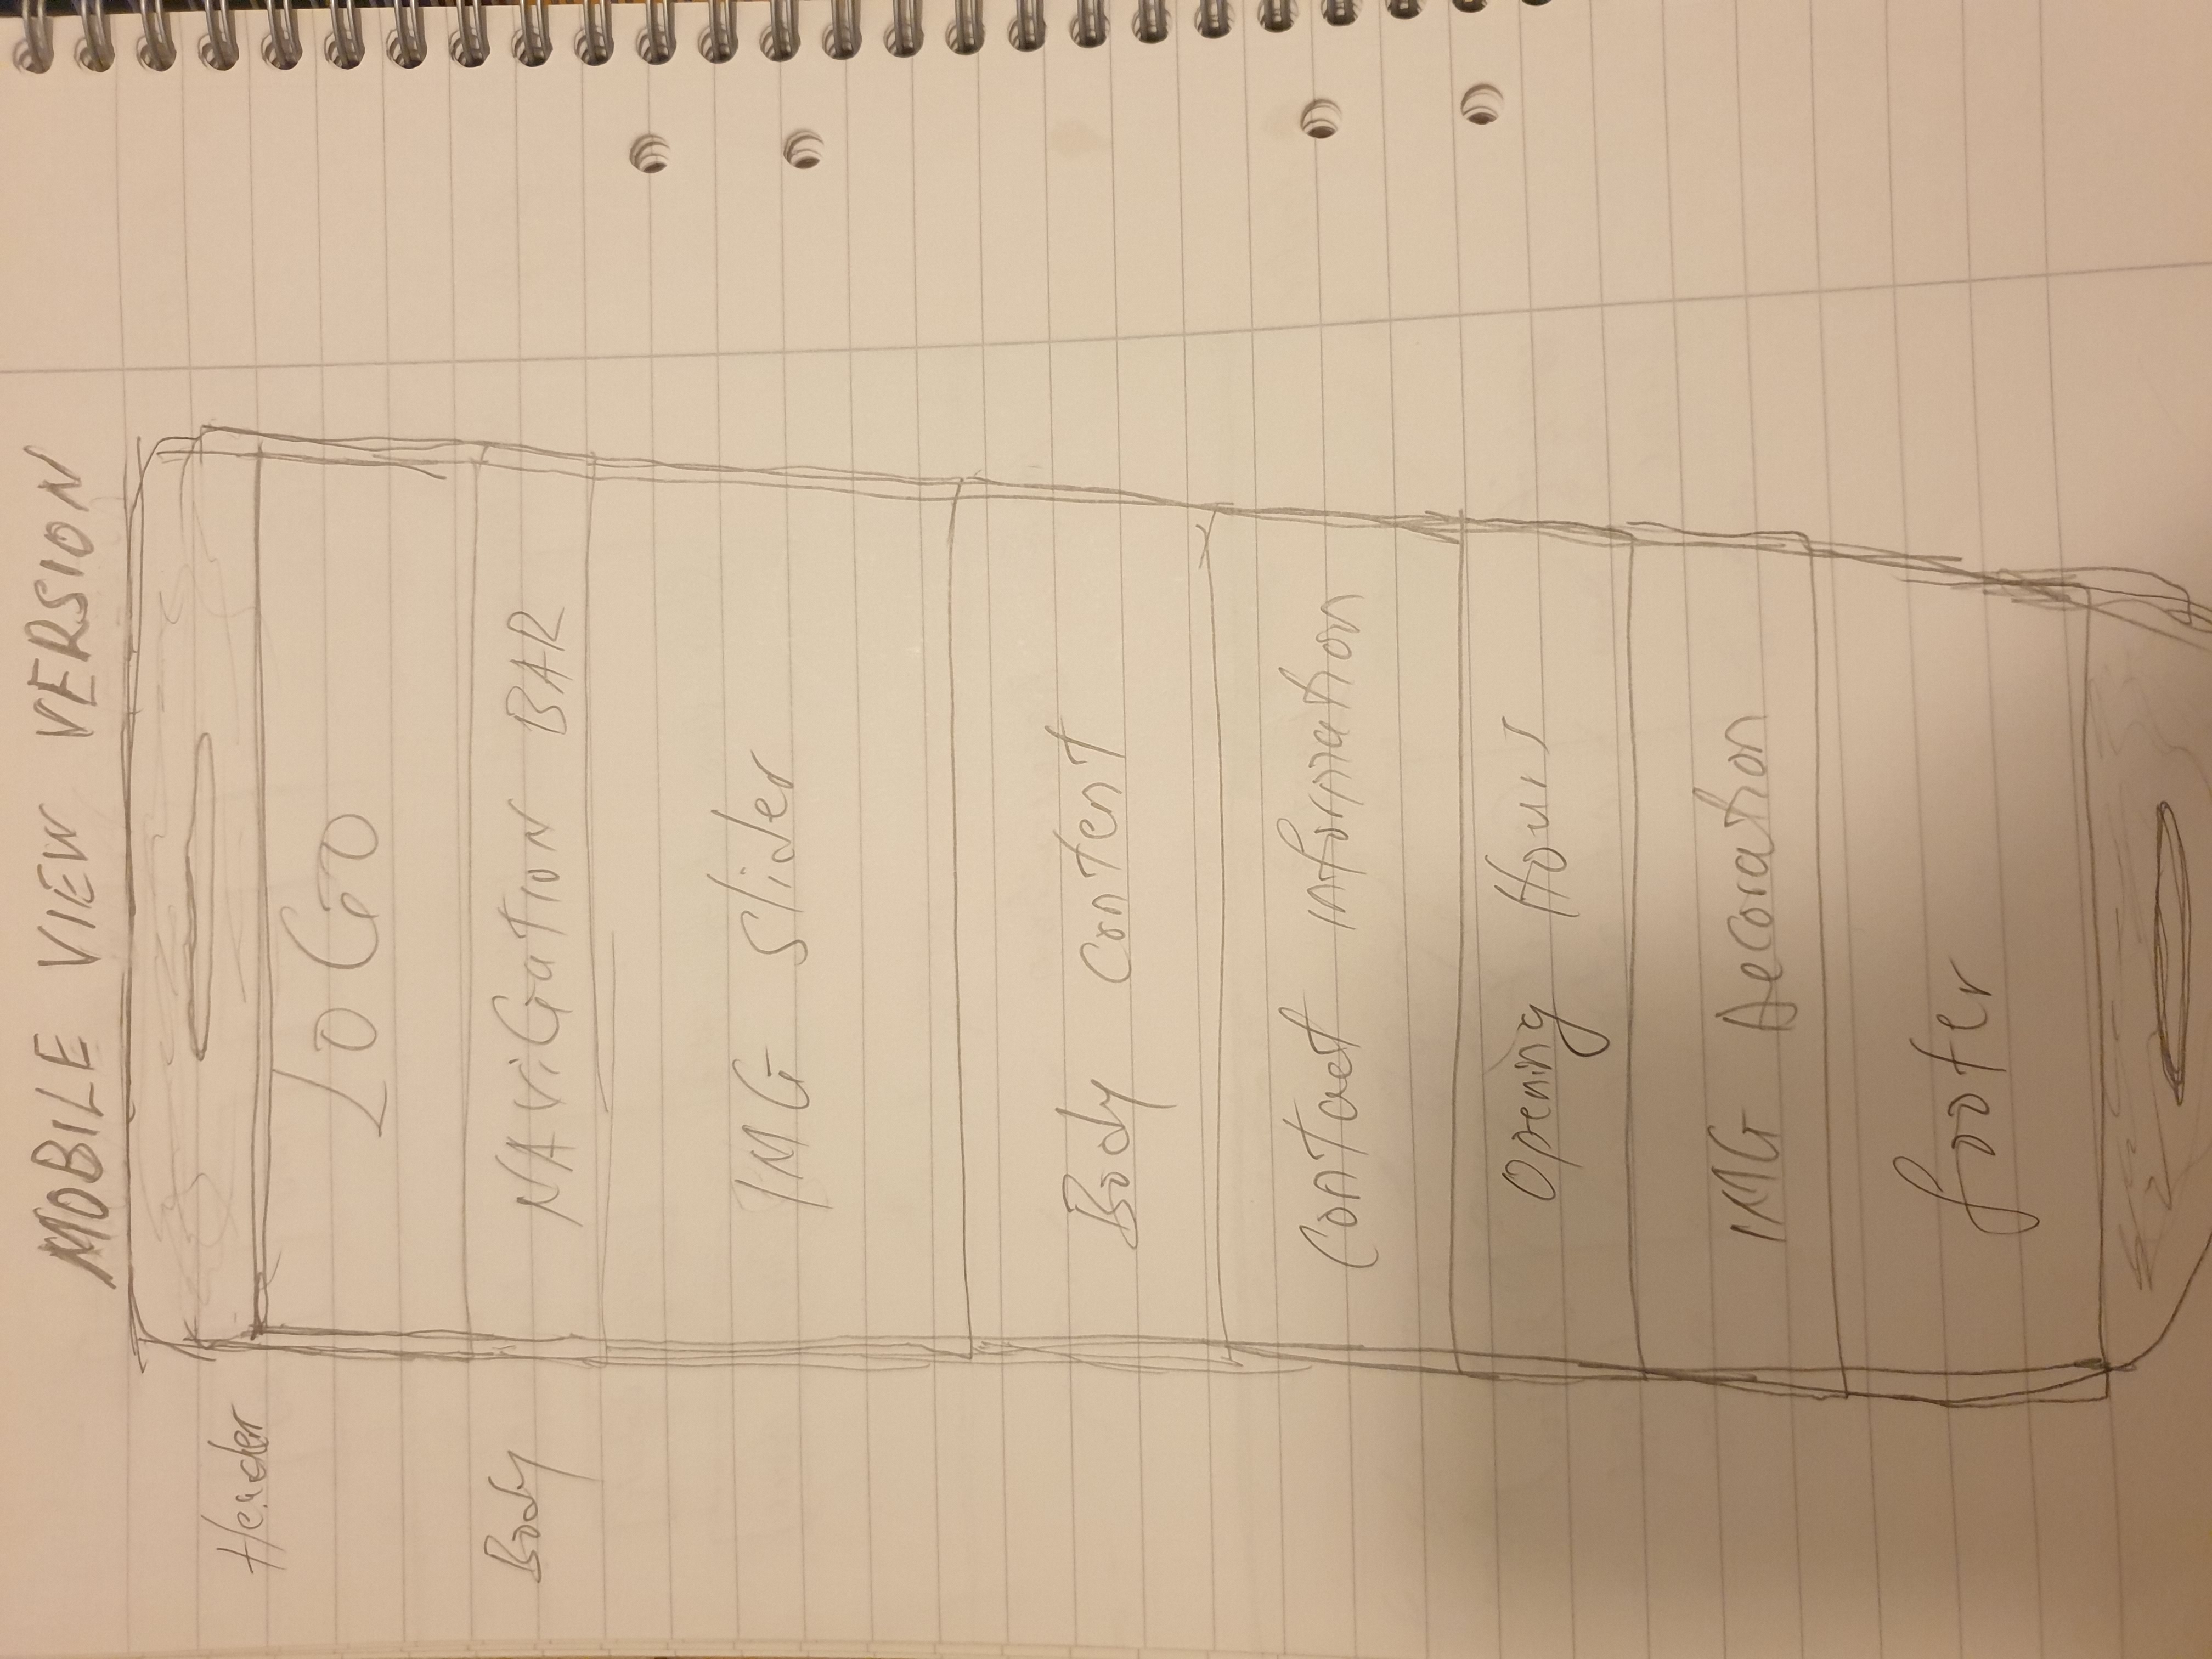 MOBILE VIEW VERSION
Header
LOGO
Body
NAViGaTION BAR
IMG Slider
Body content
Contact information
Opening Hours
IMG Decoration
footer